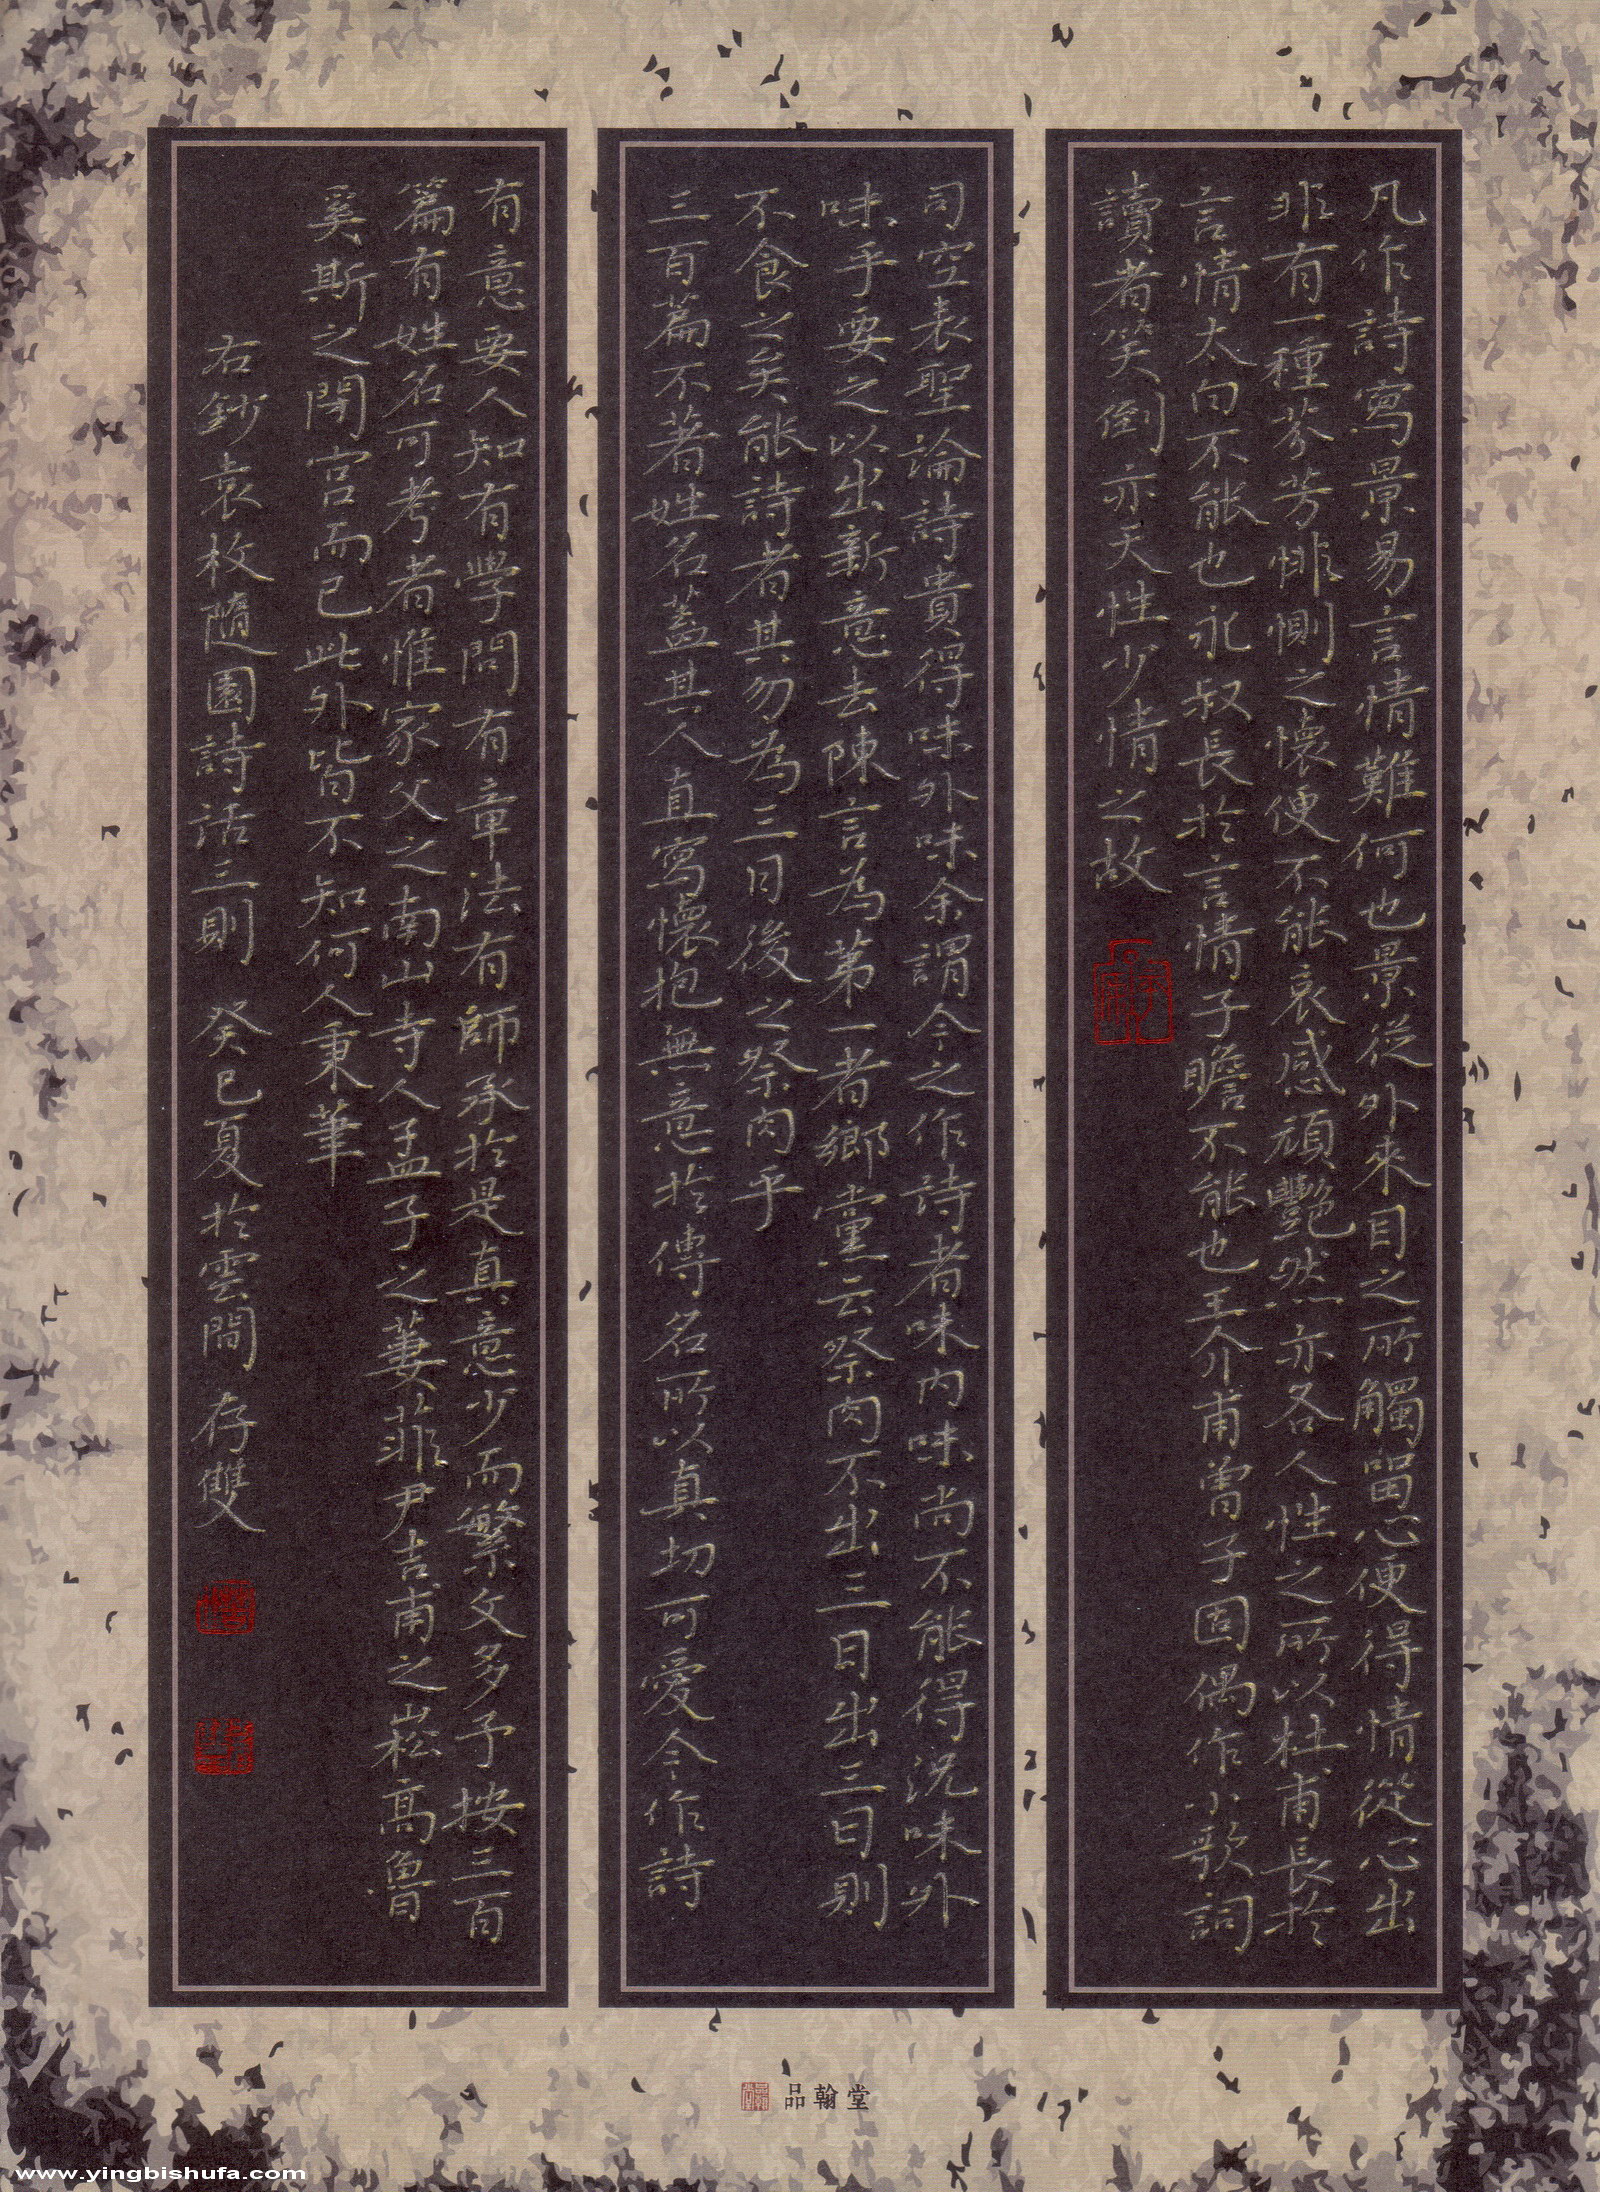 凡作詩寫景易言情難何也景從外來目之所觸留心便得情從心出
非有一種芬芳悱惻之懷便不能哀感頑艷然亦各人性之所以杜甫長於
言情太白不能也永叔長於言情子瞻不能也王介甫曾子固偶作小歌詞
讀者笑倒亦天性少情之故
司空表聖論詩貴得味外味余謂今之作詩者味內味尚不能得況味外
味乎要之以出新意去陳言為第一著鄉黨云祭肉不出三日出三日則
不食之矣能詩者其勿為三日後之祭肉乎
三百篇不著姓名蓋其人直寫懷抱無意於傳名所以真切可愛今作詩
有意要人知有學問有章法有師承於是真意少而繁文多予按三百
篇有姓名可考者惟家父之南山寺人孟子之萋菲尹吉甫之崧高魯
奚斯之閟宮而已此外皆不知何人秉筆
右鈔袁枚隨園詩話三則 癸巳夏於雲間 存雙
品翰堂
www.yingbishufa.com